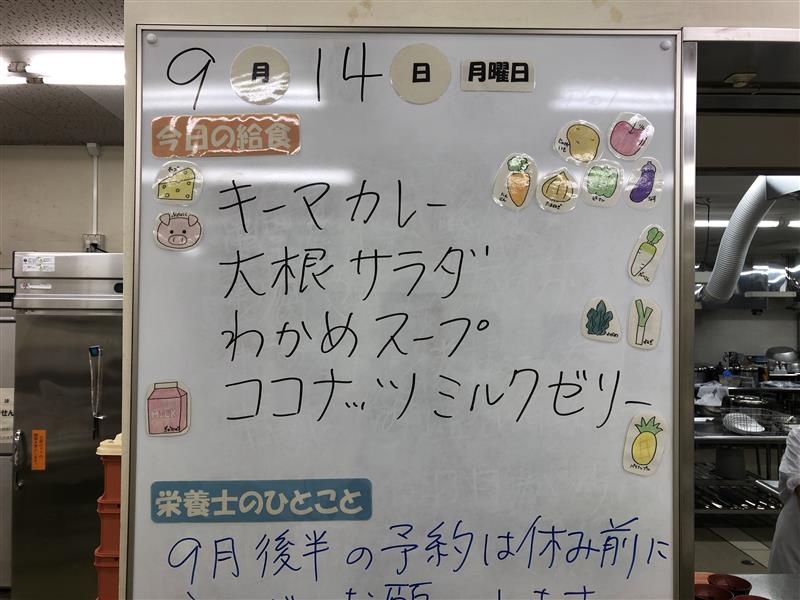 9月14日 月曜日
今日の給食
キーマカレー
大根サラダ
わかめスープ
ココナッツミルクゼリー
MILK
栄養士のひとこと
9月後半の予約は休み前に